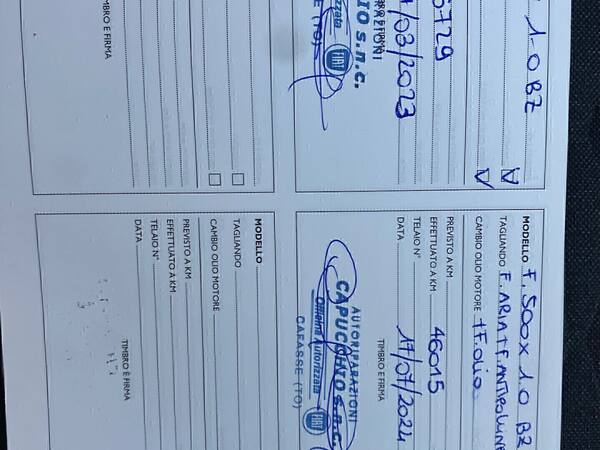 1.0 BZ
6729
/03/2023
MBRO E FIRMA
RIPARAZIONI
IO s.n.c.
rizzata
FIAT
E (TO)
MBRO E FIRMA
MODELLO F. 500X 1.0 BZ
TAGLIANDO F. ARIA + F. ANTIPOLLINE
CAMBIO OLIO MOTORE + F. olio
PREVISTO A KM
EFFETTUATO A KM 46015
TELAIO N°
DATA 17/07/2024
TIMBRO E FIRMA
AUTORIPARAZIONI
CAPUCCHIO s.n.c.
Officina Autorizzata
FIAT
CAFASSE (TO)
MODELLO
TAGLIANDO
CAMBIO OLIO MOTORE
PREVISTO A KM
EFFETTUATO A KM
TELAIO N°
DATA
TIMBRO E FIRMA